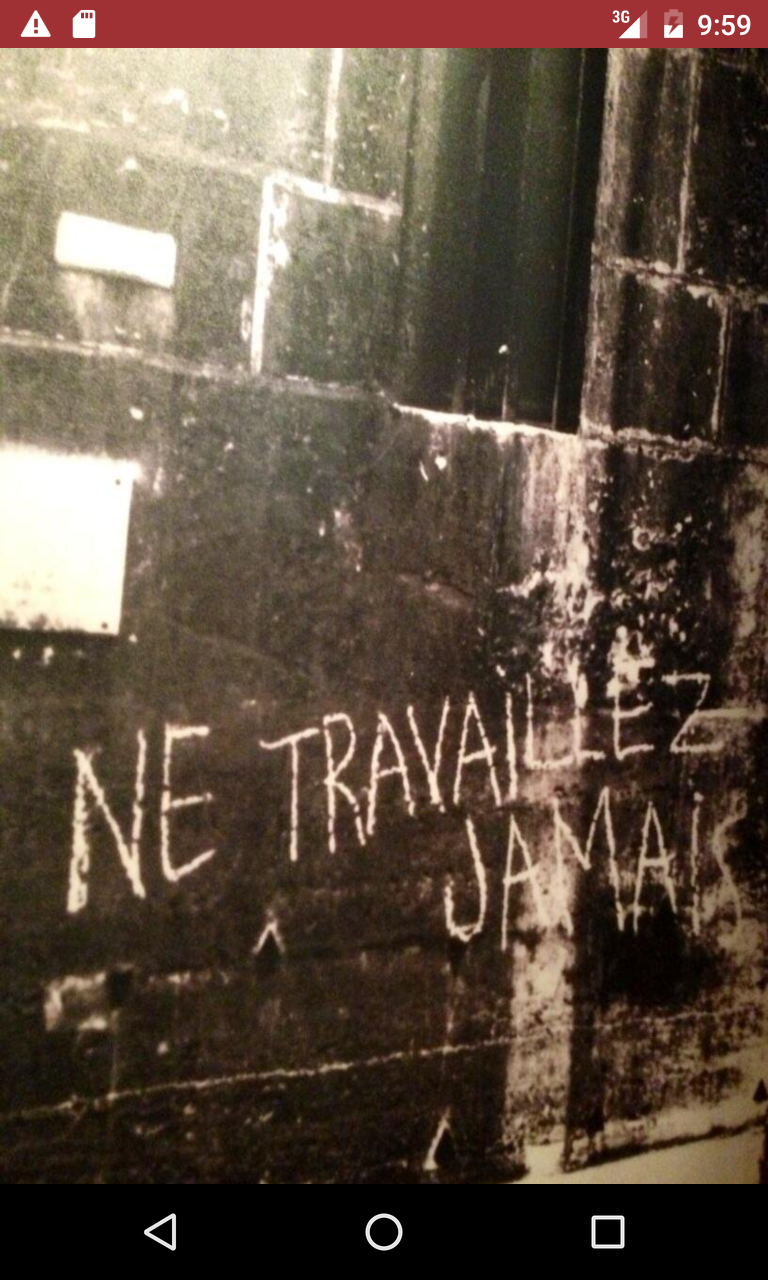 3G 9:59
NE TRAVAILLEZ
JAMAIS